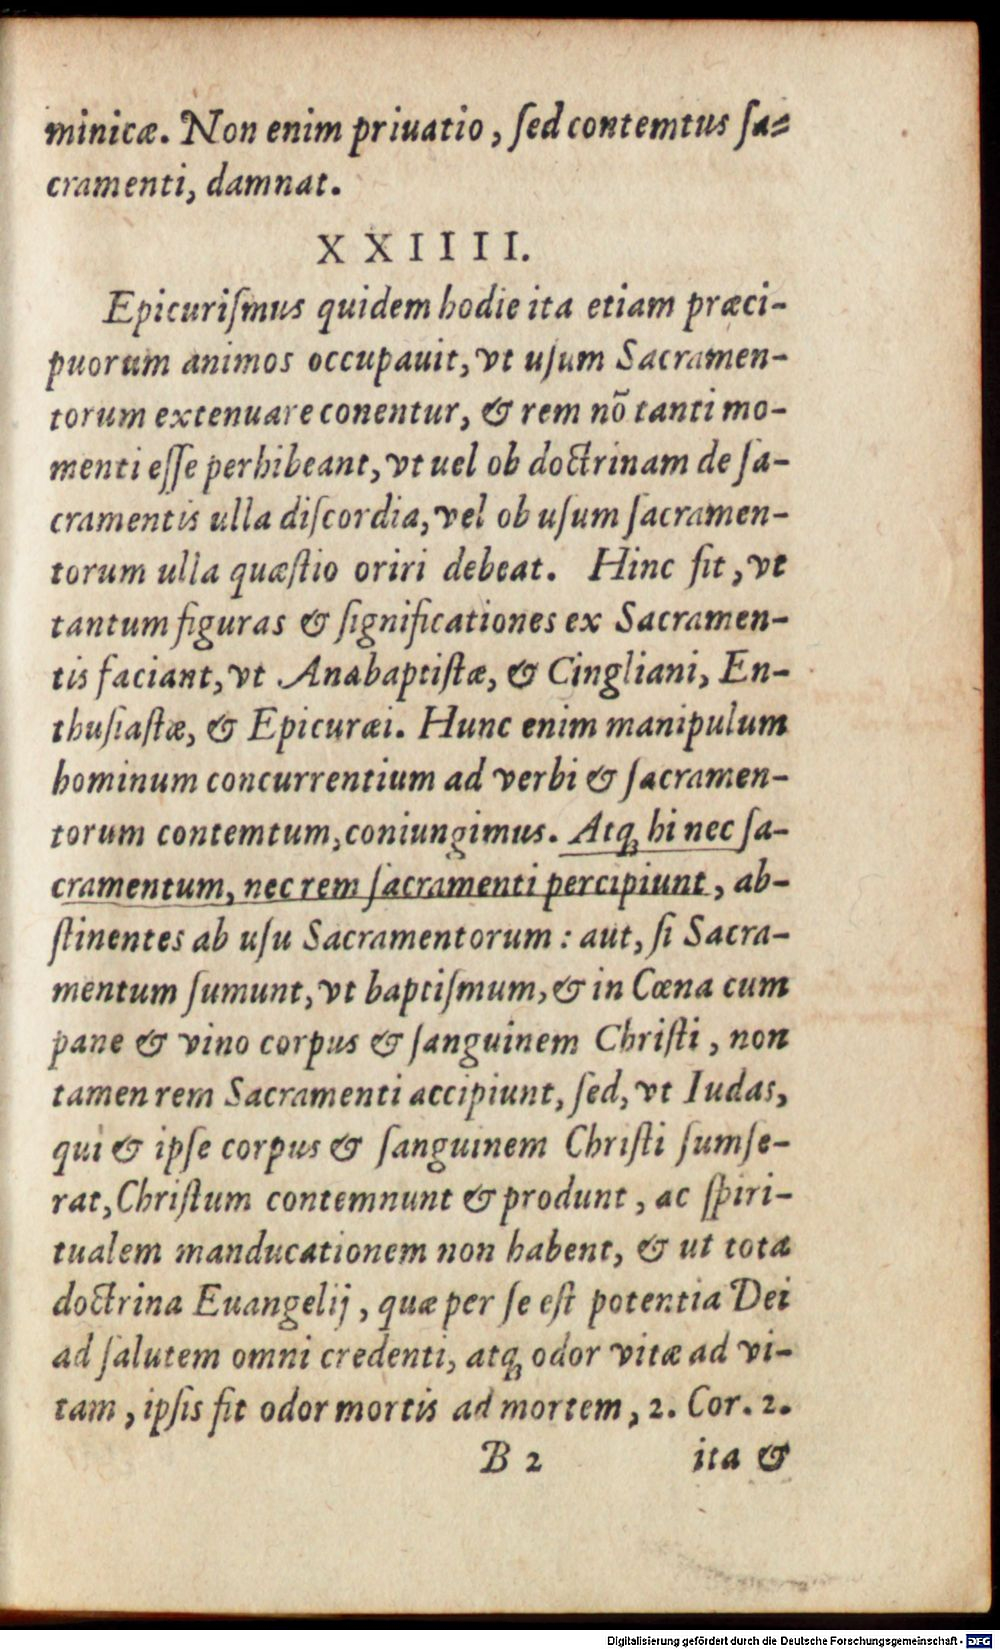 minicæ. Non enim priuatio, ſed contemtus ſa-
cramenti, damnat.
XXIIII.
Epicuriſmus quidem hodie ita etiam præci-
puorum animos occupauit, vt uſum Sacramen-
torum extenuare conentur, & rem nõ tanti mo-
menti eſſe perhibeant, vt uel ob doctrinam de ſa-
cramentis ulla diſcordia, vel ob uſum ſacramen-
torum ulla quæſtio oriri debeat. Hinc fit, vt
tantum figuras & ſignificationes ex Sacramen-
tis faciant, vt Anabaptiſtæ, & Cingliani, En-
thuſiaſtæ, & Epicuræi. Hunc enim manipulum
hominum concurrentium ad verbi & ſacramen-
torum contemtum, coniungimus. Atq; hi nec ſa-
cramentum, nec rem ſacramenti percipiunt, ab-
ſtinentes ab uſu Sacramentorum: aut, ſi Sacra-
mentum ſumunt, vt baptiſmum, & in Cœna cum
pane & vino corpus & ſanguinem Chriſti, non
tamen rem Sacramenti accipiunt, ſed, vt Iudas,
qui & ipſe corpus & ſanguinem Chriſti ſumſe-
rat, Chriſtum contemnunt & produnt, ac ſpiri-
tualem manducationem non habent, & ut tota
doctrina Euangelij, quæ per ſe eſt potentia Dei
ad ſalutem omni credenti, atq; odor vitæ ad vi-
tam, ipſis fit odor mortis ad mortem, 2. Cor. 2.
B 2 ita &
Digitalisierung gefördert durch die Deutsche Forschungsgemeinschaft - DFG